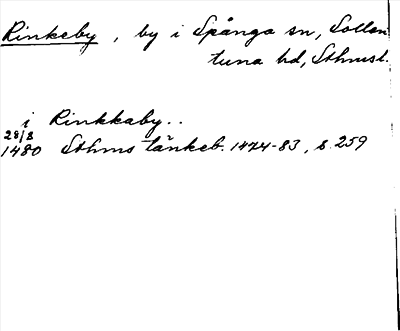 Rinkeby, by i Spånga sn, Sollen
tuna hd, Sthmsl.
i Rinkkaby..
28/8
1480 Sthms tänkeb. 1474-83, s. 259